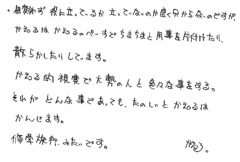 ・相変わらず 役に立っているか 立っていないのか良く分からないのですが、
かえるは かえるのペースでちまちまと用事を片付けたり、
散らかしたりしています。
かえる的視覚で大勢の人と色々な事をする。
それが どんな事であっても、たのしいと かえるは
かんじます。
修学旅行みたいです。